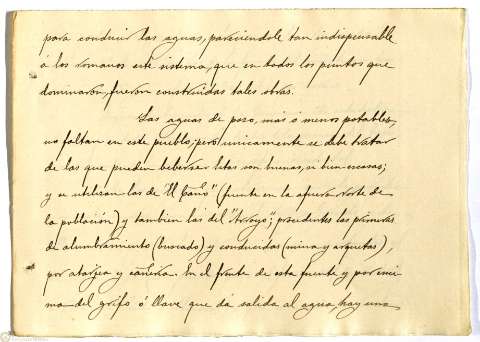 para conducir las aguas, pareciendole tan indispensable
á los romanos este sistema, que en todos los puntos que
dominaron, fueron construidas tales obras.
Las aguas de pozo, más ó menos potables,
no faltan en este pueblo; pero unicamente se debe tratar
de las que pueden beberse: estas son buenas, si bien escasas;
y se utilizan las de "El Caño" (fuente en la afuera Norte de
la población) y tambien las del "Arroyo"; procedentes las primeras
de alumbramiento (buscado) y conducidas (mina y arquetas),
por atarjea y cañeria. En el frente de esta fuente y por enci-
ma del grifo ó llave que dá salida al agua, hay una